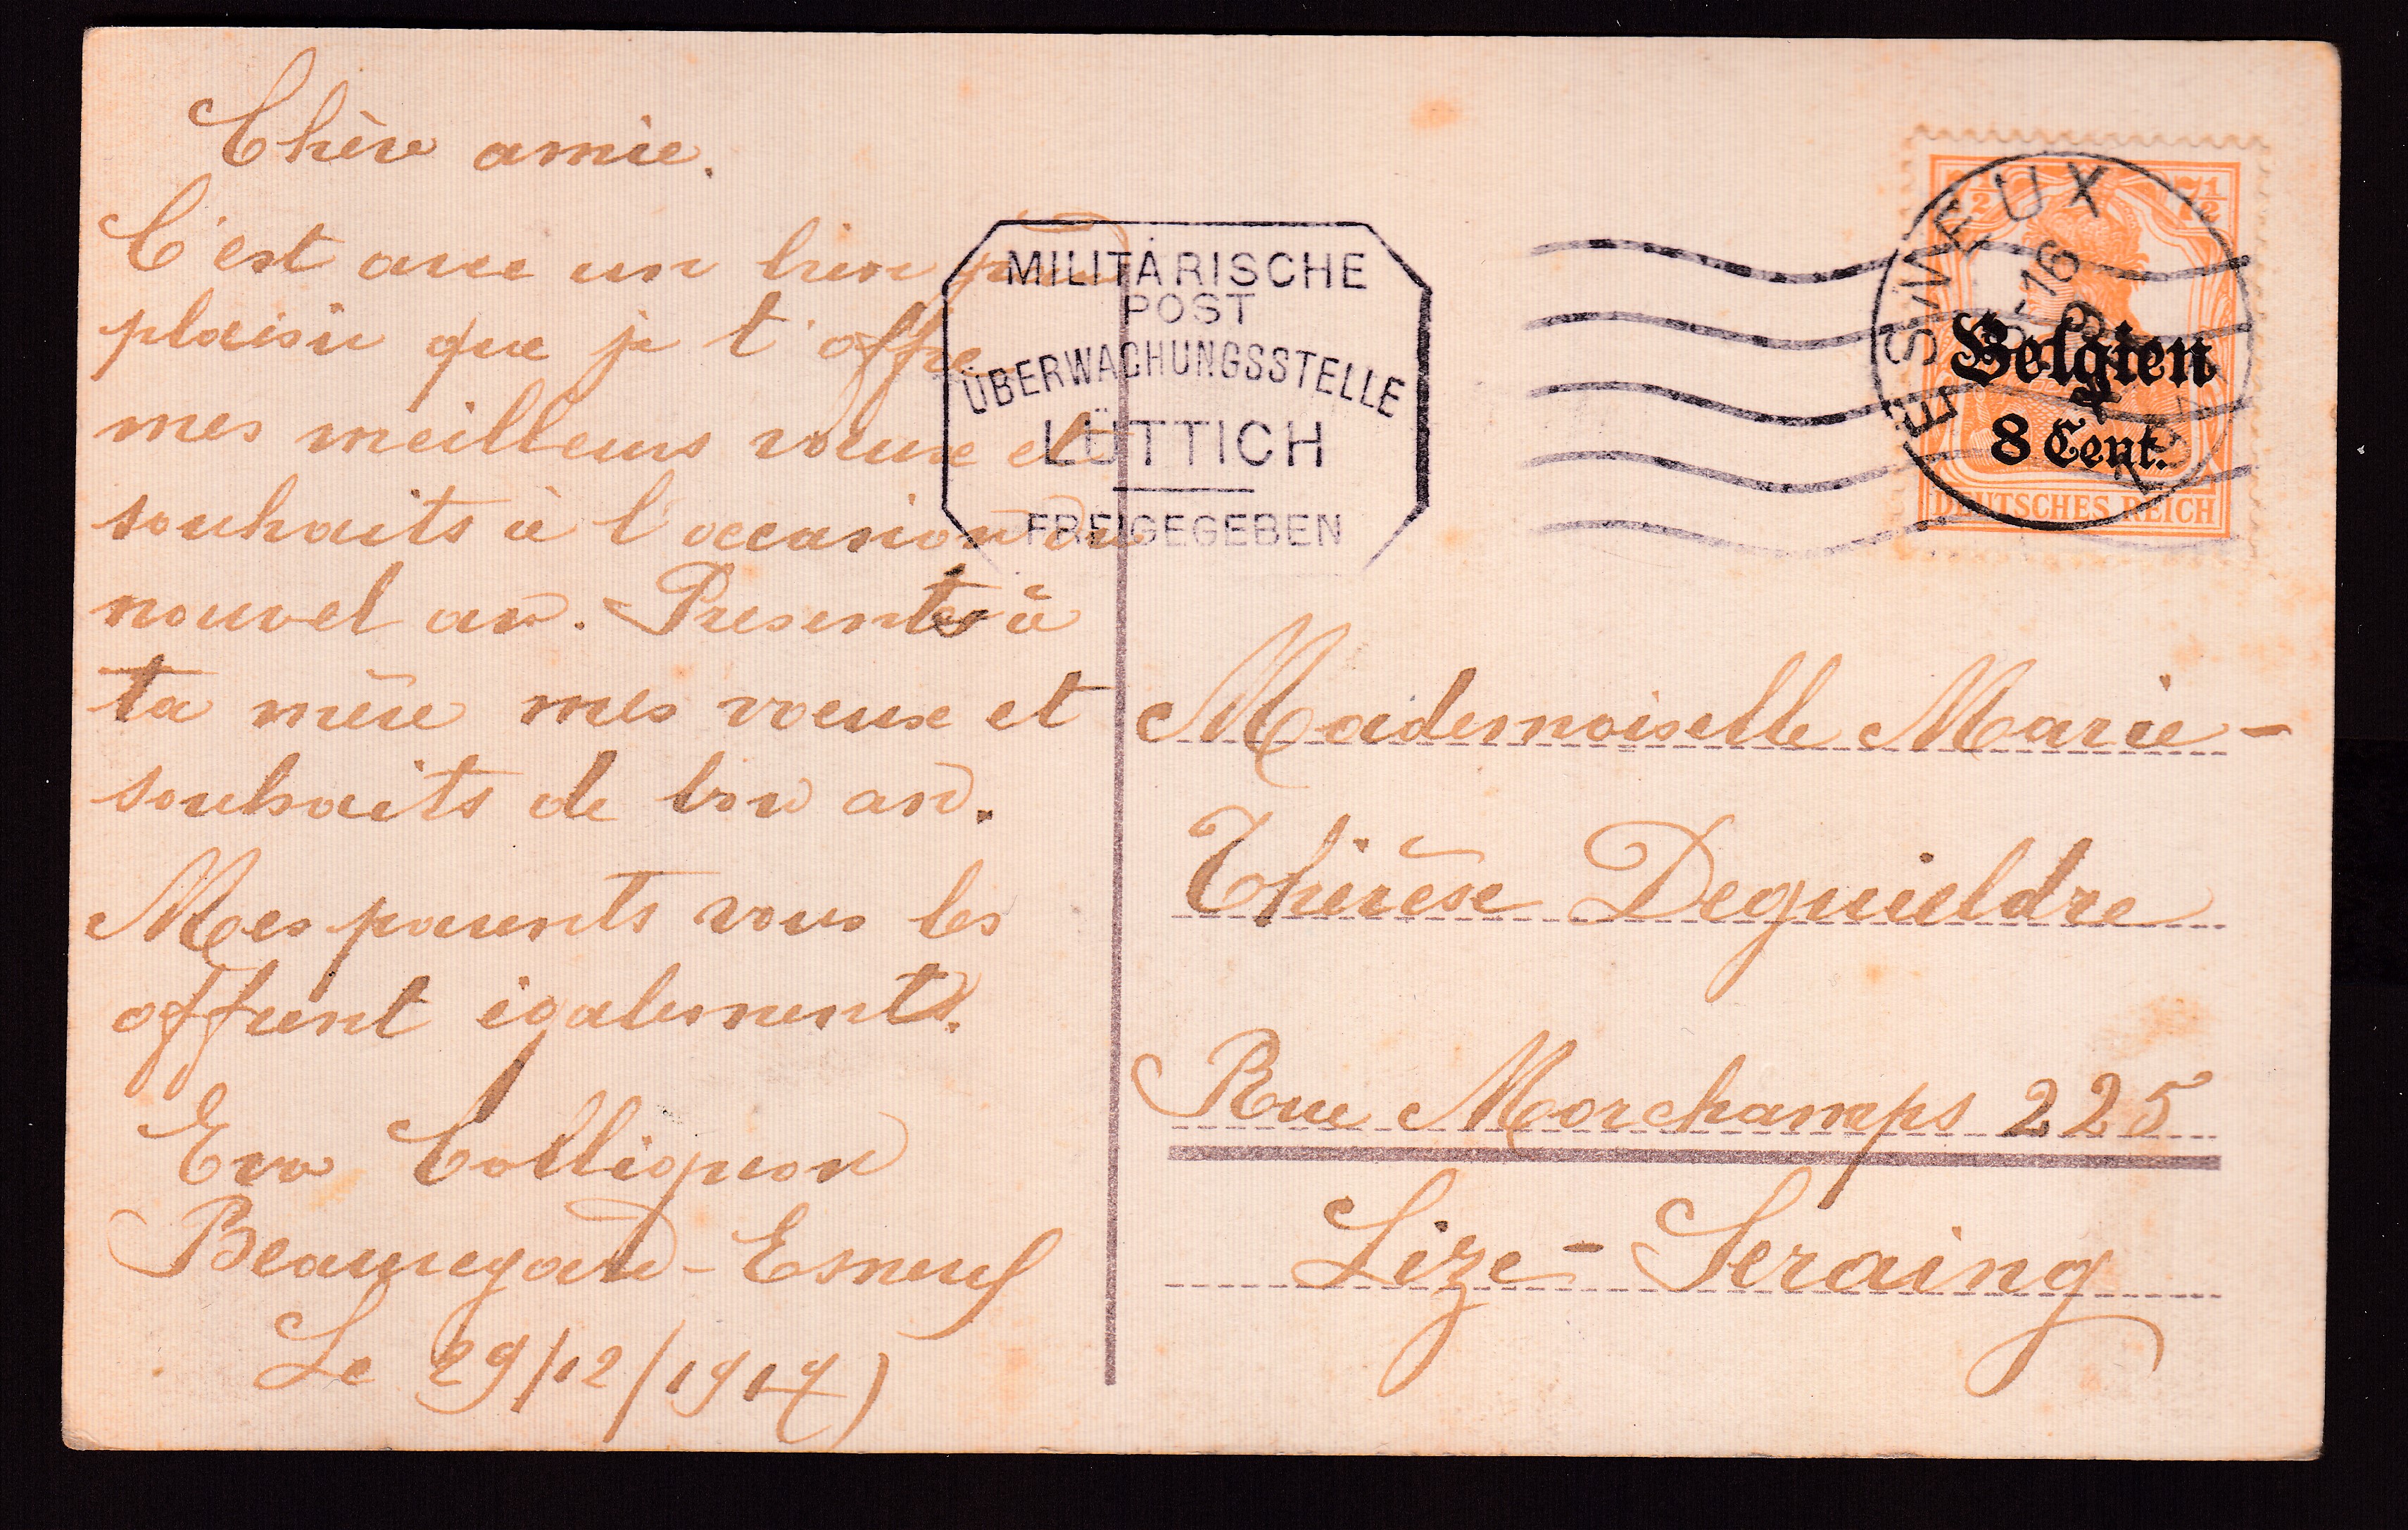 Chère amie.
C'est avec un bien
plaisir que je t'offre
mes meilleurs voeux et
souhaits à l'occasion du
nouvel an. Presentes à
ta mère mes voeux et
souhaits de bon an.
Mes parents vous les
offrent également.
Eva Collignon
Beauregard-Esneux
Le 29/12/1917)
MILITÄRISCHE
POST
ÜBERWACHUNGSSTELLE
LÜTTICH
FREIGEGEBEN
ESNEUX
7½ 7½
Belgien
8 Cent.
DEUTSCHES REICH
Mademoiselle Marie-
Thérèse Deguieldre
Rue Morchamps 225
Lize-Seraing